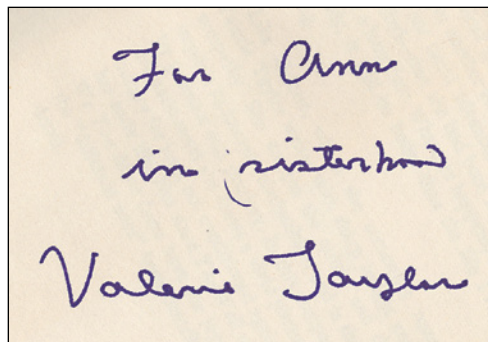 For Ann
in sisterhood
Valerie Taylor